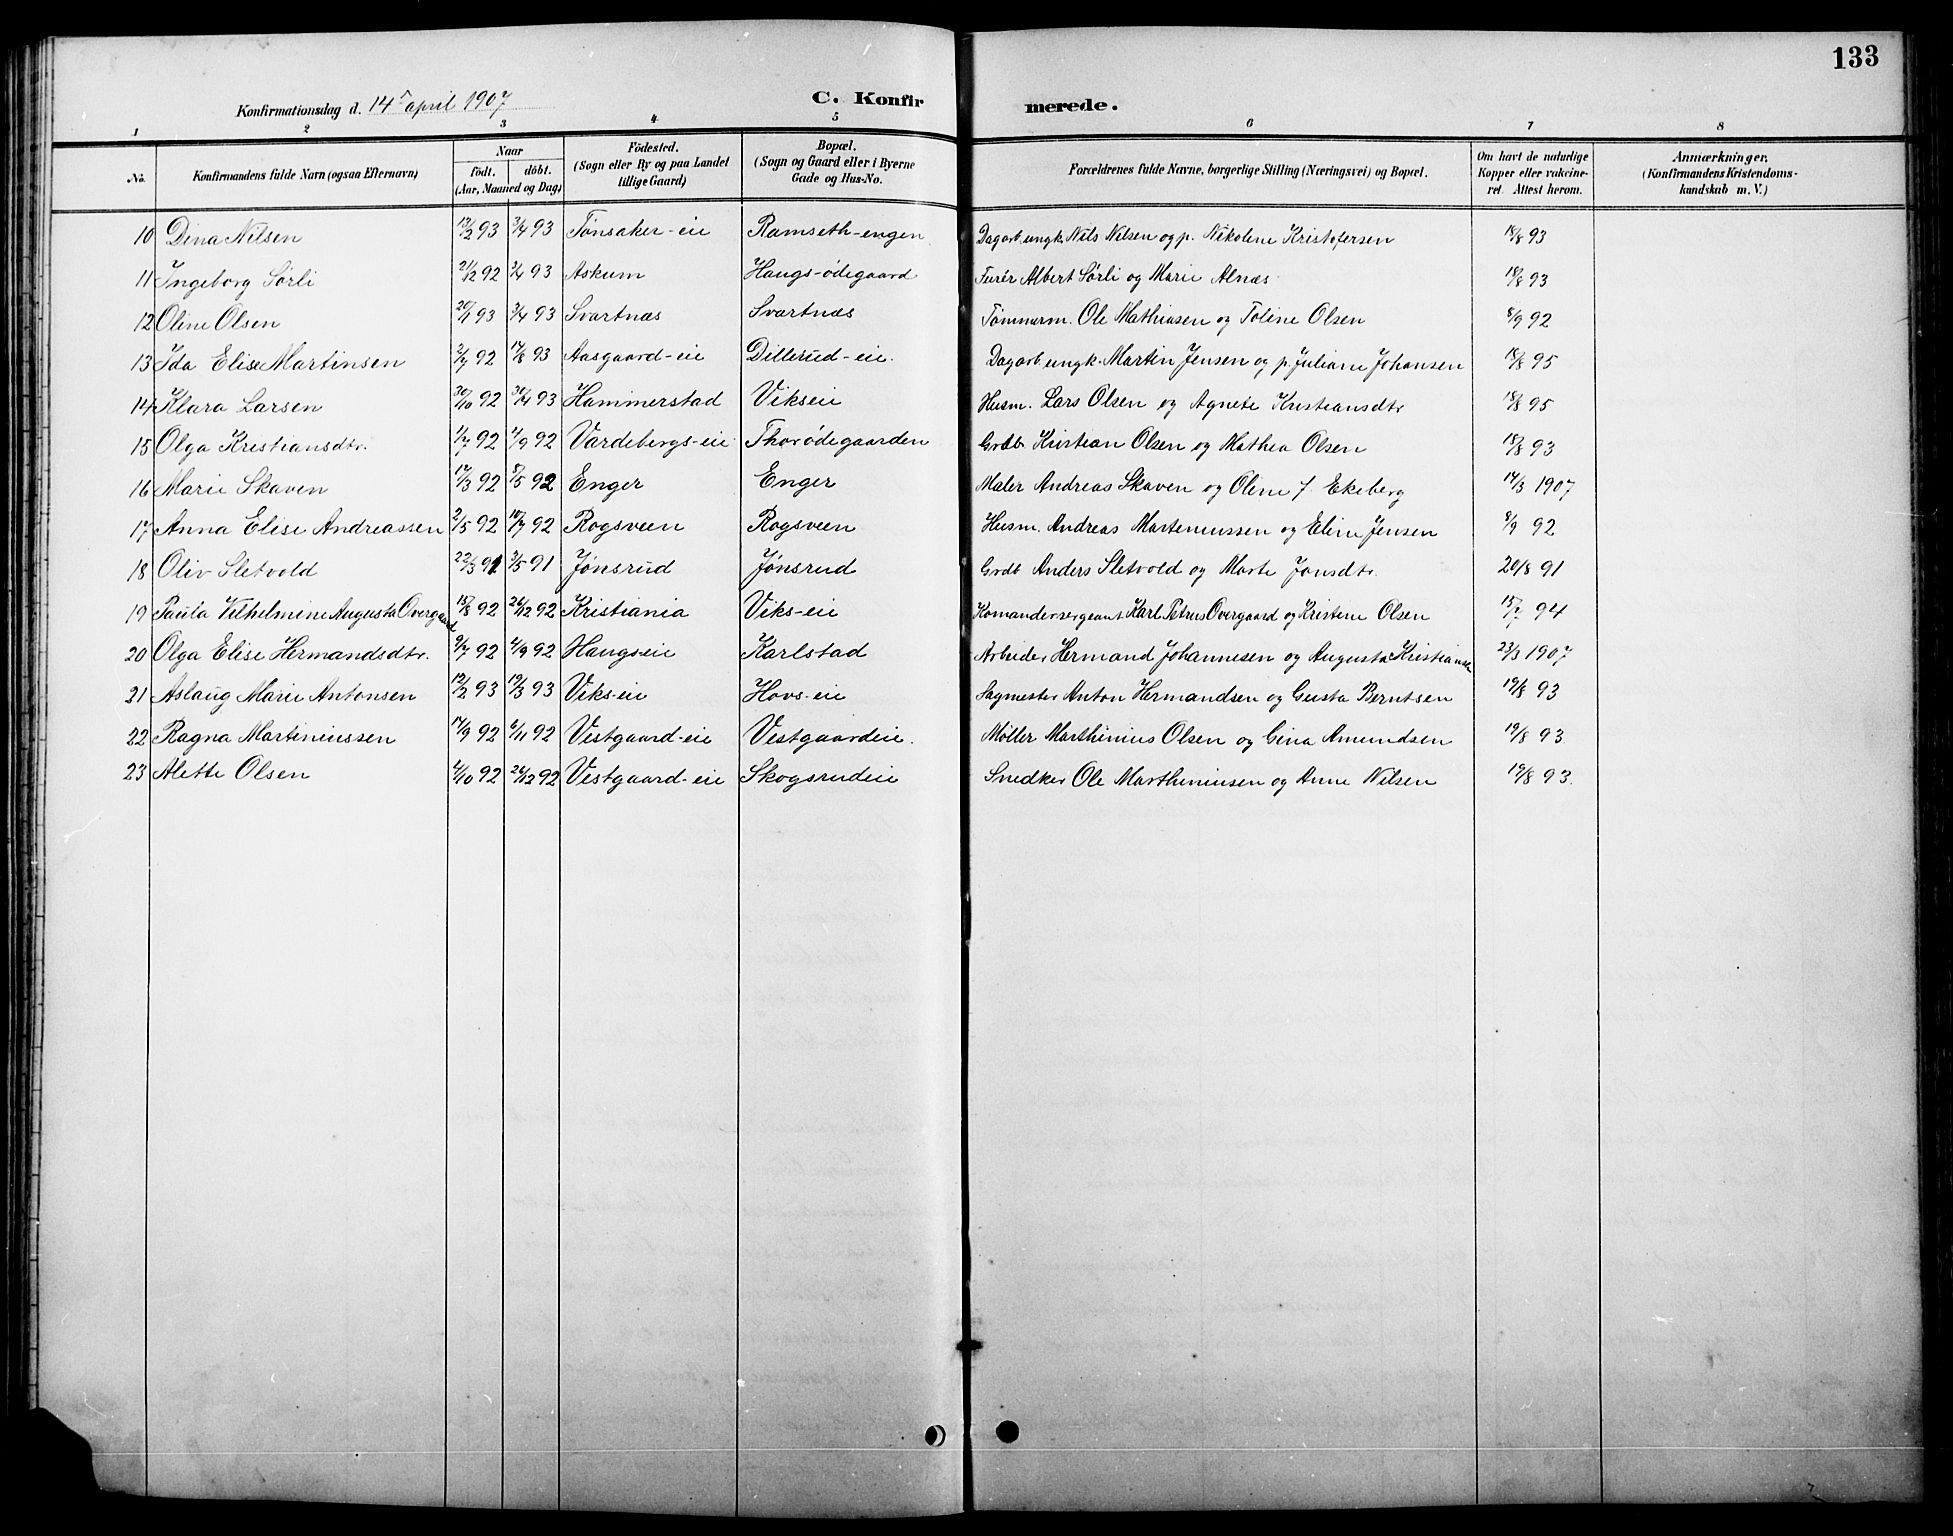 133
Konfirmationsdag d. 14de april 1907 C. Konfirmerede.
1 2 3 4 5 6 7 8
No. Konfirmandens fulde Navn (ogsaa Efternavn) Naar födt. döbt. (Aar, Maaned og Dag) Födested. (Sogn eller By og paa Landet tillige Gaard) Bopæl. (Sogn og Gaard eller i Byerne Gade og Hus-No. Forældrenes fulde Navne, borgerlige Stilling (Næringsvei) og Bopæl. Om havt de naturlige Kopper eller vakcineret. Attest herom. Anmærkninger. (Konfirmandens Kristendomskundskab m. V.)
10 Dina Nilsen 12/2 93 3/4 93 Tønsaker-eie Ramseth-engen Dagarb. ungk. Nils Nilsen og p. Nikoline Kristofersen 18/8 93
11 Ingeborg Sørli 21/12 92 3/4 93 Askum Haugs-ødegaard Furér Albert Sørli og Marie Alnæs 18/8 93
12 Oline Olsen 20/1 93 3/4 93 Svartnæs Svartnæs Tømmerm. Ole Mathiasen og Toline Olsen 8/9 92
13 Ida Elise Martinsen 3/7 92 17/8 93 Aasgaard-eie Dillerud-eie. Dagarb. ungk. Martin Jensen og p. Juliane Johansen 18/8 95
14 Klara Larsen 30/10 92 30/4 93 Hammerstad Vikseie Husm. Lars Olsen og Agnete Kristiansdtr 18/8 95
15 Olga Kristiansdtr. 1/7 92 4/9 92 Vardebergs-eie Thorødegaarden Grdb. Kristian Olsen og Mathea Olsen 18/8 93
16 Marie Skaven 17/3 92 8/5 92 Enger Enger Maler Andreas Skaven og Oline f. Ekeberg 14/3 1907
17 Anna Elise Andreassen 2/5 92 10/7 92 Rogsveen Rogsveen Husm. Andreas Martenussen og Eline Jensen 9/9 92
18 Oliv Sletvold 22/3 91 3/5 91 Jønsrud Jønsrud Grdb Anders Sletvold og Marte Jonsdtr. 20/8 91
19 Paula Vilhelmine Augusta Overgaard 15/8 92 26/12 92 Kristiania Viks-eie Komandersergeant Karl Petrus Overgaard og Kristine Olsen 15/7 94
20 Olga Elise Hermandsdtr. 9/7 92 4/9 92 Haugs-eie Karlstad Arbeider Hermand Johannesen og Augusta Kristiansen 23/3 1907
21 Aslaug Marie Antonsen 12/2 93 19/3 93 Viks-eie Hovs-eie Sagmester Anton Hermandsen og Gusta Berntsen 19/8 93
22 Ragna Martiniussen 14/9 92 6/11 92 Vestgaard-eie Vestgaardeie. Møller Marthinius Olsen og Gina Amundsen 19/8 93
23 Alette Olsen 4/10 92 26/12 92 Vestgaard-eie Skogsrudeie Snedker Ole Marthiniusen og Anne Nilsen 19/8 93.